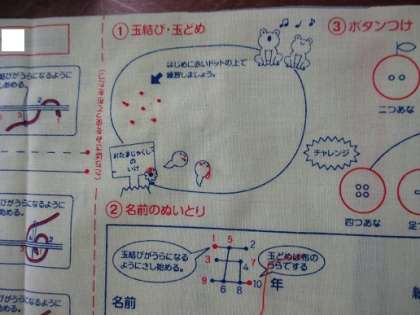 ① 玉結び・玉どめ
はじめに赤いドットの上で
練習しましょう。
おたまじゃくし
の
いけ
③ ボタンつけ
二つあな
チャレンジ
四つあな
② 名前のぬいとり
玉結びがうらになる
ようにさし始める。
1 5 2
3 4 7
9 6 8 10
玉どめは布の
うらでする
年
名前
結びがうらになるように
し始める。